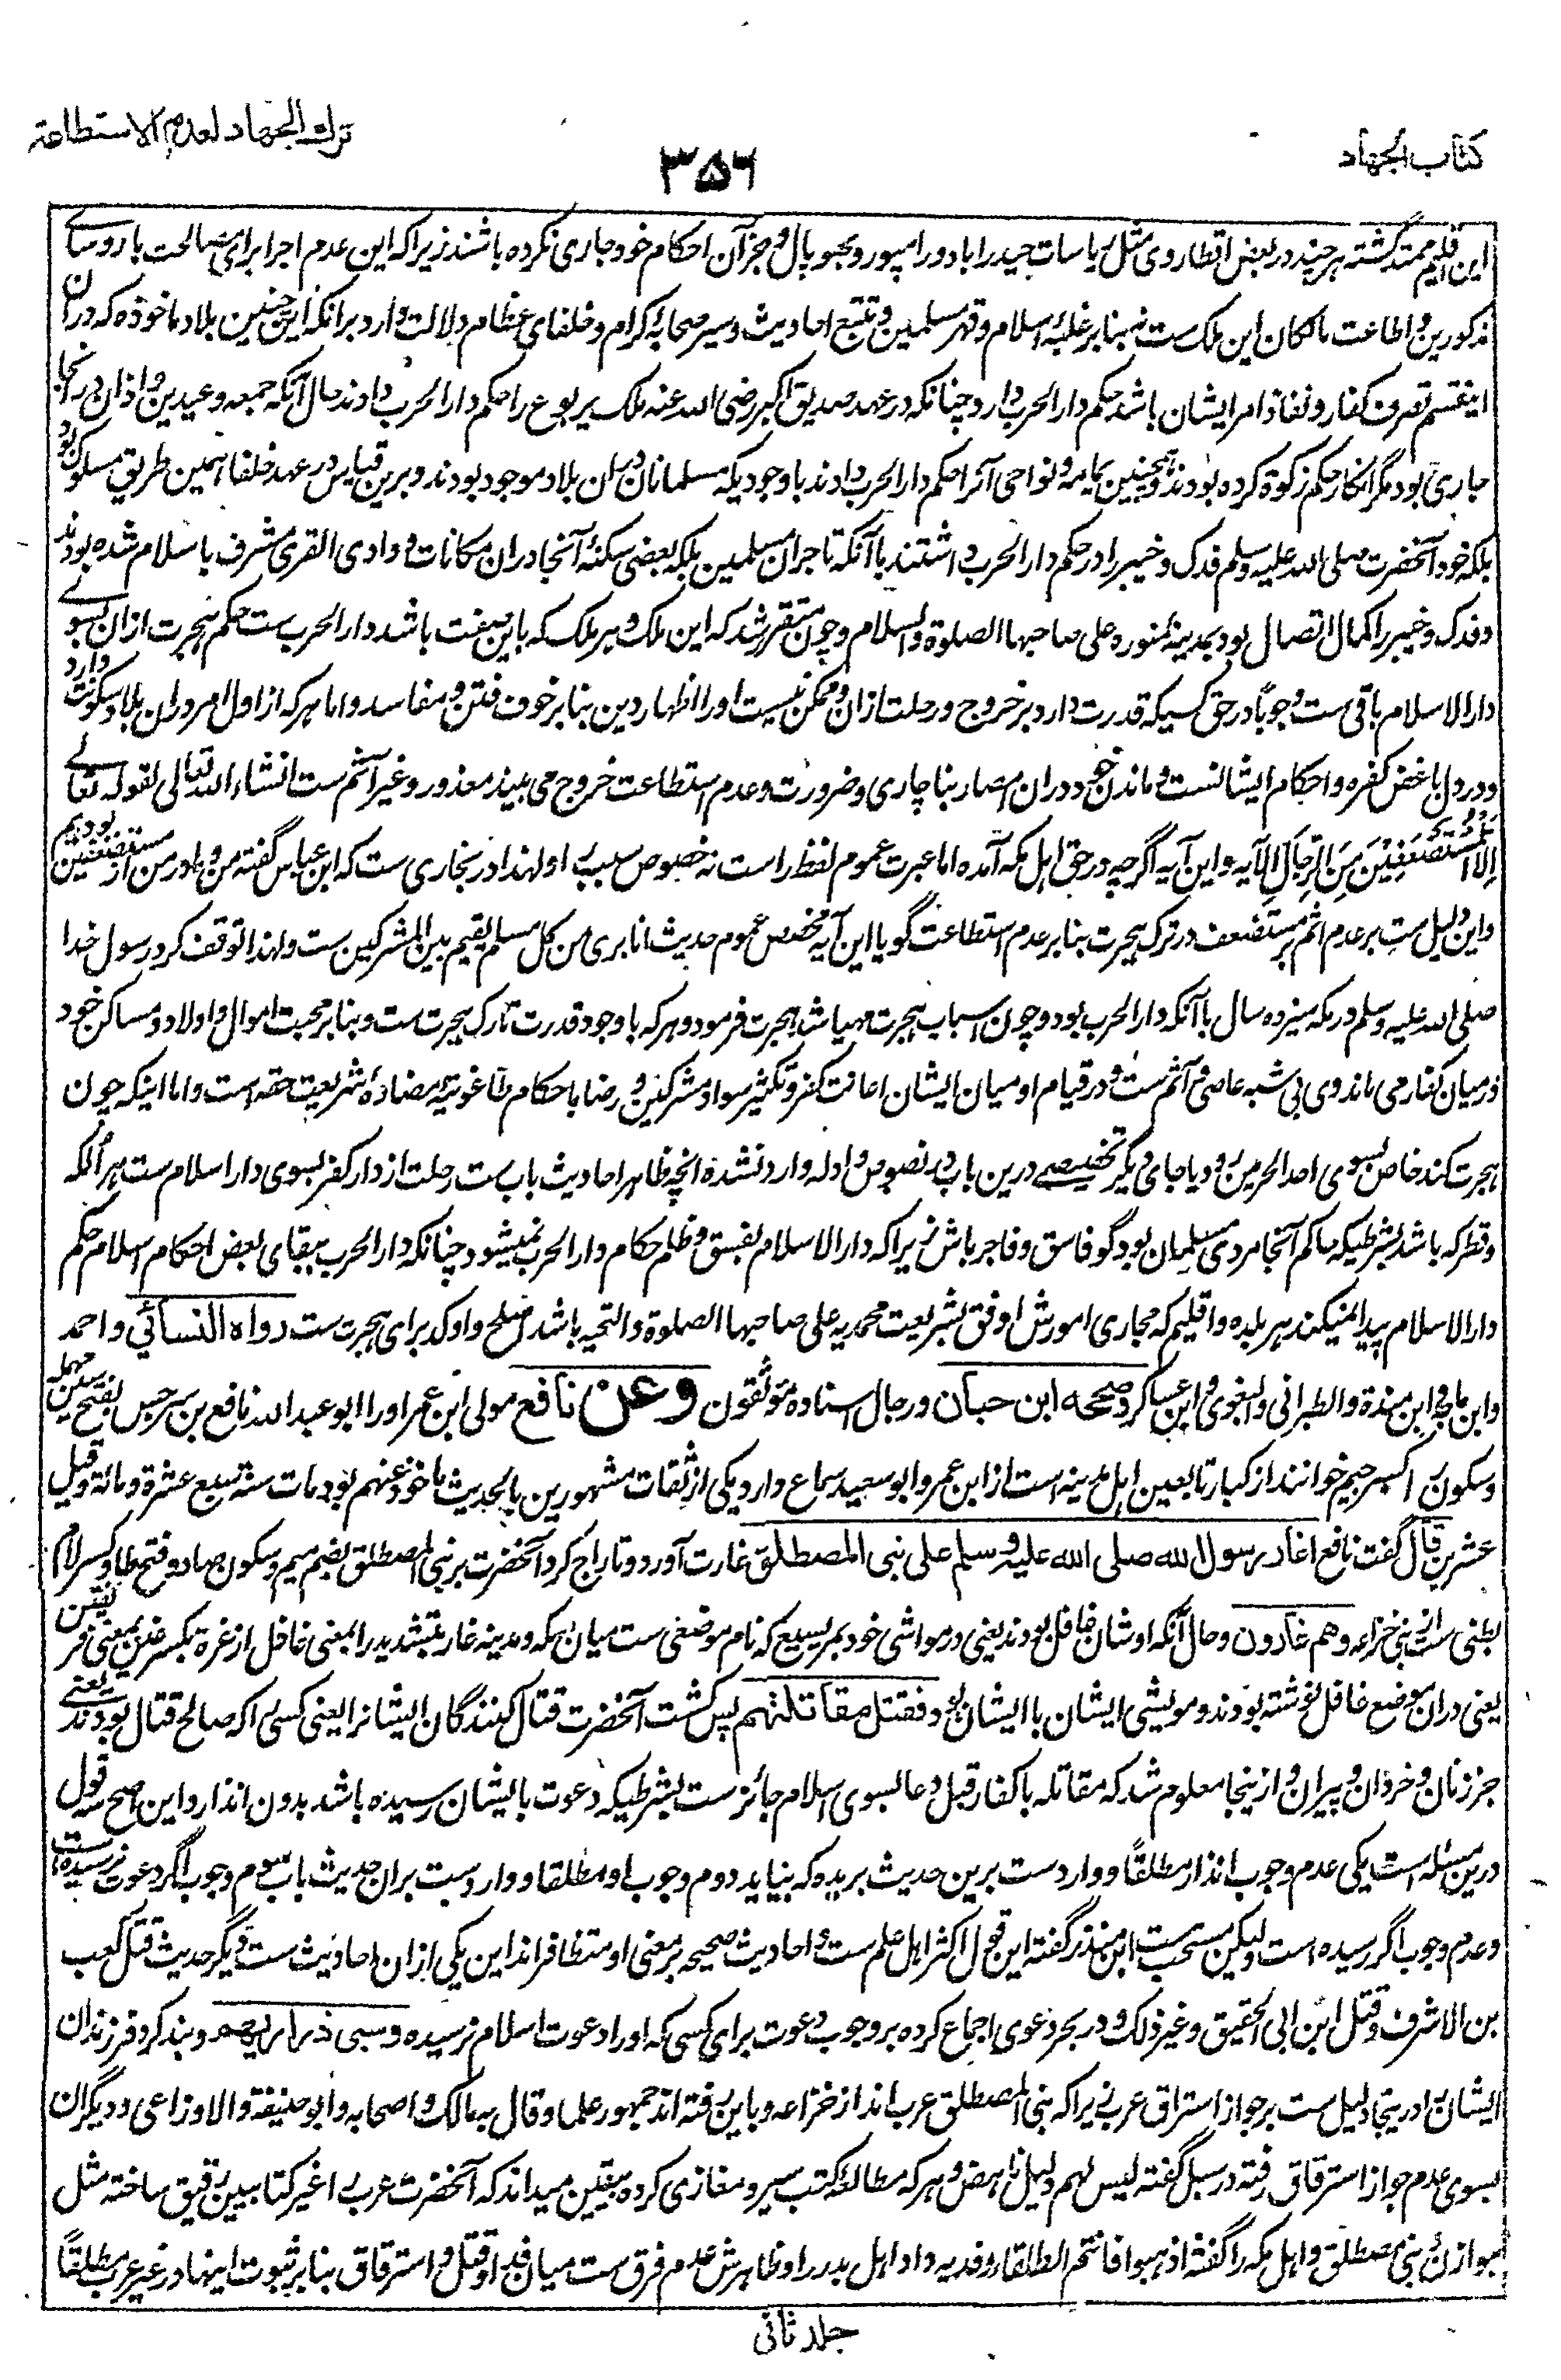 ترك الجهاد لعدم الاستطاعة
۳۵۶
كتاب الجهاد
این اقلیم ممتد گشته هرچند در بعض اقطار وی مثل ریاسات حیدراباد و رامپور و بهوپال و جز آن احکام خود جاری نکرده باشند زیراکه این عدم اجرا برای مصالحت با روسای
مذکورین و اطاعت مالکان این ملک ست نه بنابر غلبهٔ اسلام و قهر مسلمین و تتبع احادیث و سیر صحابهٔ کرام و خلفای عظام دلالت دارد برانکه این چنین بلاد ماخوذه که دران
اینقسم تصرف کفار و نفاذ امر ایشان باشد حکم دارالحرب دارد چنانکه در عهد صدیق اکبر رضی الله عنه ملک یربوع را حکم دارالحرب دادند حال آنکه جمعه و عیدین و اذان در انجا
جاری بود مگر انکار حکم زکوة کرده بودند و همچنین یمامه و نواحی آنرا حکم دارالحرب دادند باوجودیکه مسلمانان دران بلاد موجود بودند و برین قیاس در عهد خلفا همین طریق مسلوک بود
بلکه خود آنحضرت صلی الله علیه وسلم فدک و خیبر را در حکم دارالحرب داشتند با آنکه تاجران مسلمین بلکه بعضی سکنهٔ آنجا دران مکانات و وادی القری مشرف باسلام شده بودند
و فدک و خیبر را کمال اتصال بود بمدینهٔ منوره علی صاحبها الصلوة والسلام و چون متقرر شد که این ملک و هر ملک که باین صفت باشد دارالحرب ست حکم هجرت ازان بسوی
دارالاسلام باقی ست وجوبا در حق کسیکه قدرت دارد بر خروج و رحلت ازان و ممکن نیست او را اظهار دین بنابر خوف فتن و مفاسد و اما هرکه از اول امر دران بلاد سکونت دارد
و در دل باغض کفره و احکام ایشانست و ماندن خود دران امصار بناچاری و ضرورت و عدم استطاعت خروج می بیند معذور و غیر آثم ست انشاء الله تعالی لقوله تعالے
اِلَّا الْمُسْتَضْعَفِیْنَ مِنَ الرِّجَالِ الآیه و این آیه اگرچه در حق اهل مکه آمده اما عبرت عموم لفظ راست نه خصوص سبب را و لهذا در بخاری ست که ابن عباس گفته من و مادر من از مستضعفین بودیم
و این دلیل ست بر عدم اثم بر مستضعف در ترک هجرت بنابر عدم استطاعت گویا این آیه مخصص عموم حدیث انا بری من کل مسلم یقیم بین المشرکین ست و لهذا توقف کرد رسول خدا
صلی الله علیه وسلم در مکه سیزده سال با آنکه دارالحرب بود و چون اسباب هجرت مهیا شد هجرت فرمود و هرکه باوجود قدرت تارک هجرت ست و بنابر محبت اموال و اولاد و مساکن خود
در میان کفار می ماند وی بی شبه عاصی و آثم ست و در قیام او میان ایشان اعانت کفر و تکثیر سواد مشرکین و رضا باحکام طاغوتیهٔ مضادهٔ شریعت حقه است و اما اینکه چون
هجرت کند خاص بسوی احد الحرمین رود یا جای دیگر تخصیصے درین باب در نصوص و ادله وارد نشده انچه ظاهر احادیث باب ست رحلت از دار کفر بسوی دار اسلام ست هر ملکے
و قطر که باشد بشرطیکه حاکم آنجا مردی مسلمان بود گو فاسق و فاجر باش زیراکه دارالاسلام بفسق و ظلم حکام دارالحرب نمیشود چنانکه دارالحرب ببقای بعض احکام اسلام حکم
دارالاسلام پیدا نمیکند هر بلده و اقلیم که مجاری امورش اوفق بشریعت محمدیه علی صاحبها الصلوة والتحیه باشد اصلح و اوکد برای هجرت ست رواه النسائي و احمد
و ابن ماجه و ابن منده والطبرانی والبغوی و ابن عساکر صححه ابن حبان و رجال اسناده موثقون وعن نافع مولی ابن عمر او را ابو عبدالله نافع بن سرجس بفتح سین مهمله
و سکون را و کسر جیم خوانند از کبار تابعین اهل مدینه است از ابن عمر و ابو سعید سماع دارد یکی از ثقات مشهورین بالحدیث ماخوذ عنهم بود مات سنة سبع عشرة ومائة وقیل
عشرین قال گفت نافع اغار رسول الله صلى الله عليه وسلم على بنی المصطلق غارت آورد و تاراج کرد آنحضرت بر بنی المصطلق بضم میم و سکون صاد و فتح طا و کسر لام
بطنی ست از بنی خزاعه وهم غارون و حال آنکه اوشان غافل بودند یعنی در مواشی خود بمریسیع که نام موضعی ست میان مکه و مدینه غار بتشدید را بمعنی غافل از غره بکسر غین بمعنی
یعنی دران موضع غافل نوشته بودند و مویشی ایشان با ایشان بود فقتل مقاتلتهم پس کشت آنحضرت قتال کنندگان ایشانرا یعنی کسی را که صالح قتال بودند یعنی
جز زنان و خردان و پیران و ازینجا معلوم شد که مقاتله با کفار قبل دعا بسوی اسلام جائز ست بشرطیکه دعوت بایشان رسیده باشد بدون انذار و این اصح سه قول
درین مسئله است یکی عدم وجوب انذار مطلقا و وارد ست برین حدیث بریده که بیاید دوم وجوب او مطلقا و وارد ست بران حدیث باب سوم وجوب اگر دعوت نرسیده است
و عدم وجوب اگر رسیده است ولیکن مستحب ست ابن منذر گفته این قول اکثر اهل علم ست و احادیث صحیحه بر معنی او متظافر اند این یکی ازان احادیث ست و دیگر حدیث قتل کعب
بن الاشرف و قتل ابن ابی الحقیق و غیر ذلک و در بحر دعوی اجماع کرده بر وجوب دعوت برای کسی که او را دعوت اسلام نرسیده وسبی ذراریهم و بند کرد فرزندان
ایشان را درینجا دلیل ست بر جواز استرقاق عرب زیراکه بنی المصطلق عرب اند از خزاعه و باین رفته اند جمهور علما و قال به مالک و اصحابه و ابو حنیفة والاوزاعی و دیگران
بسوی عدم جواز استرقاق رفته در سبل گفته لیس لهم دلیل ناهض و هرکه مطالعهٔ کتب سیر و مغازی کرده بیقین میداند که آنحضرت عرب را غیر کتابیین رقیق ساخته مثل
هوازن و بنی مصطلق و اهل مکه را گفته اذهبوا فانتم الطلقاء و فدیه داد اهل بدر را و ظاهرش عدم فرق ست میان فدا و قتل و استرقاق بنابر ثبوت اینها در غیر عرب مطلقاً
جلد ثانی